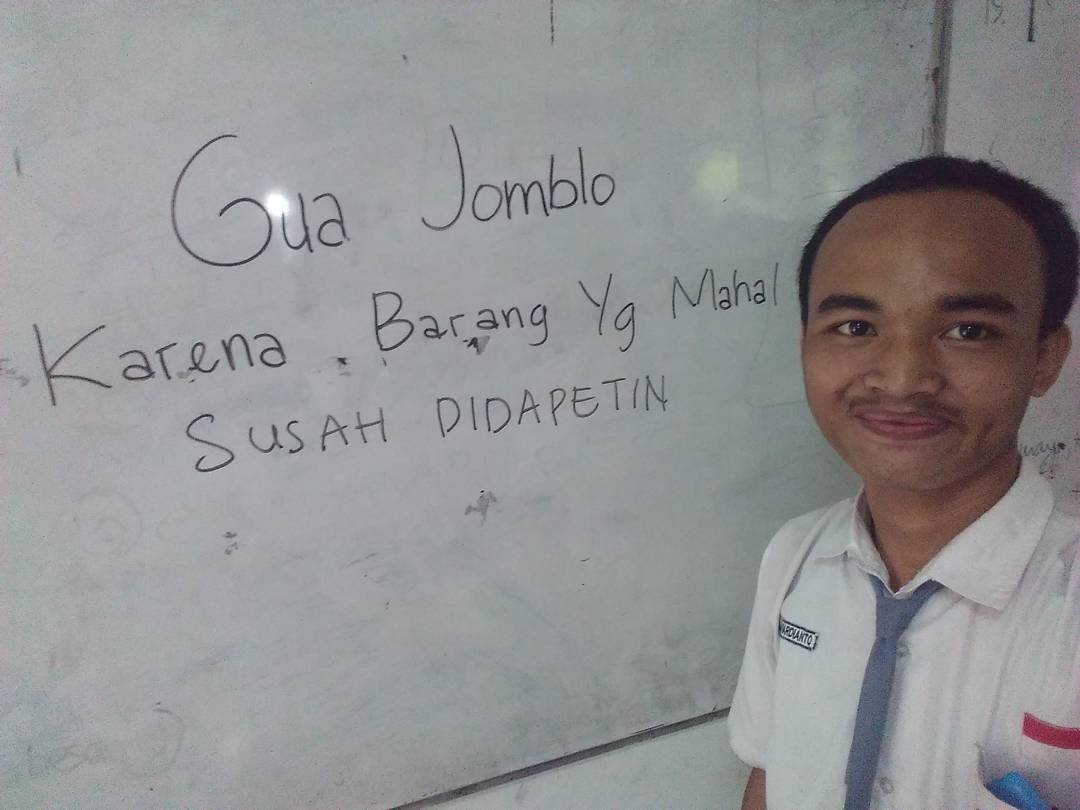 Gua Jomblo
Karena Barang Yg Mahal
SUSAH DIDAPETIN
ARDIANTO